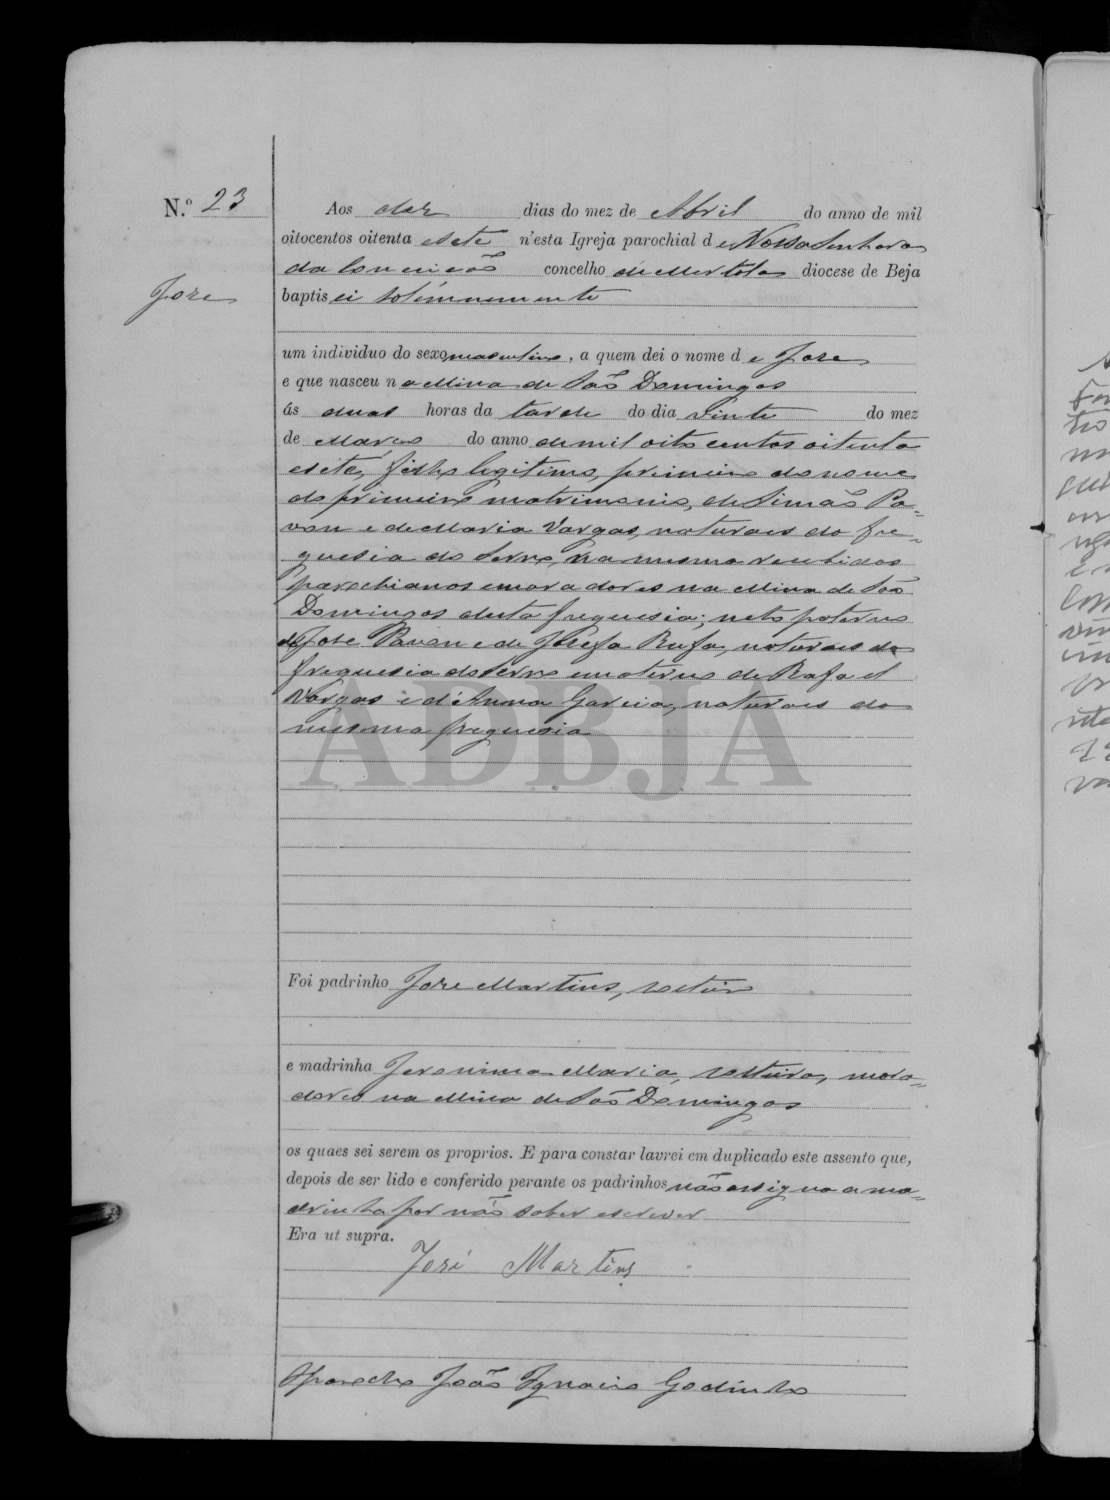 N.º 23
Aos dez dias do mez de Abril do anno de mil
oitocentos oitenta e sete n'esta Igreja parochial de Nossa Senhora
da Conceição concelho de Mertola diocese de Beja
José
baptisei solémnemente
um individuo do sexo masculino, a quem dei o nome de José
e que nasceu na Mina de São Domingos
ás duas horas da tarde do dia vinte do mez
de Março do anno de mil oito centos oitenta
e sete, filho legitimo, primeiro do nome
do primeiro matrimonio, de Simão Pa=
van e de Maria Vargas, naturaes da fre=
guesia do Serro, na mesma recebidos
parochianos e moradores na Mina de São
Domingos desta freguesia; neto paterno
de José Pavan e de Josefa Rufa, naturaes da
freguesia do Serro e materno de Rafael
Vargas e d'Anna Garcia, naturaes da
mesma freguesia
ADBJA
Foi padrinho José Martins, solteiro
e madrinha Jeronima Maria, solteira, mora=
dores na Mina de São Domingos
os quaes sei serem os proprios. E para constar lavrei em duplicado este assento que,
depois de ser lido e conferido perante os padrinhos não assigna a ma=
drinha por não saber escrever
Era ut supra.
José Martins
O Parocho João Ignacio Godinho